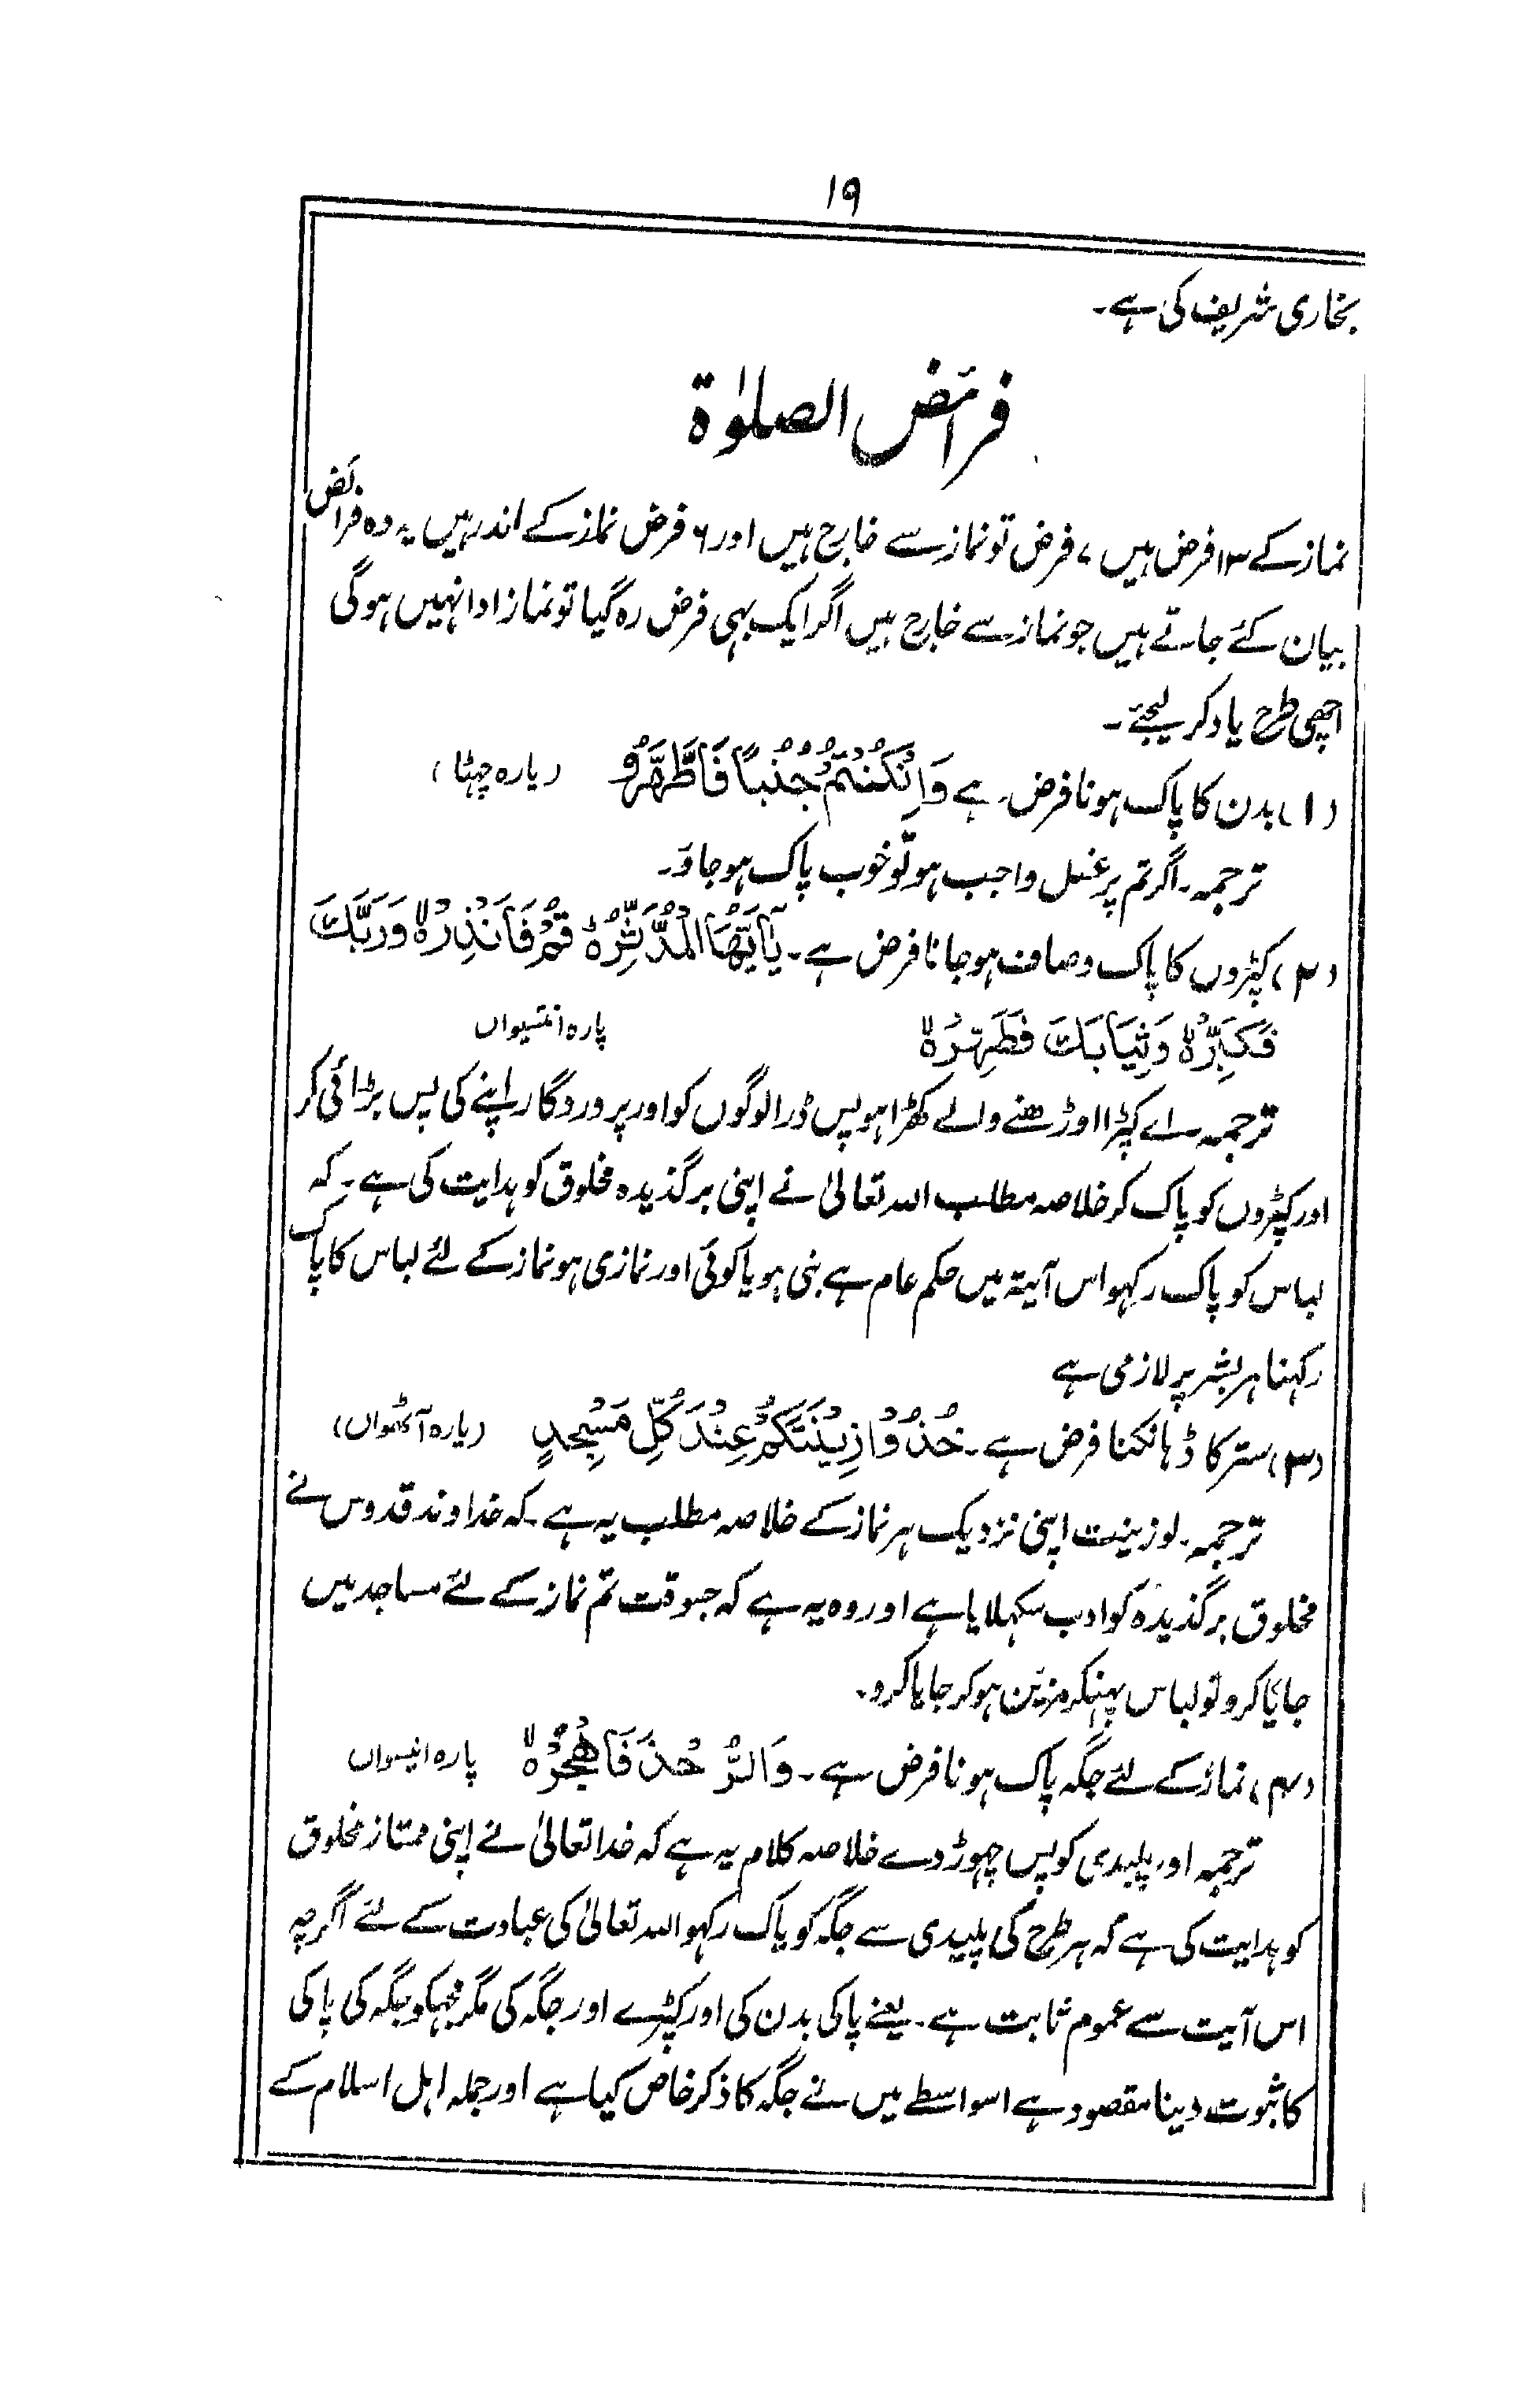 ۱۹
بخاری شریف کی ہے۔
فرائض الصلوٰۃ
نماز کے ۱۳ فرض ہیں ۷ فرض تو نماز سے خارج ہیں اور ۶ فرض نماز کے اندر ہیں یہ وہ فرائض
بیان کئے جاتے ہیں جو نماز سے خارج ہیں اگر ایک بہی فرض رہ گیا تو نماز ادا نہیں ہوگی
اچھی طرح یاد کر لیجئے۔
(۱) بدن کا پاک ہونا فرض ہے وَاِنْکُنْتُمْ جُنُبًا فَاطَّهَّرُوْ (پارہ چہٹا)
ترجمہ۔ اگر تم پر غسل واجب ہو تو خوب پاک ہو جاؤ۔
(۲) کپڑوں کا پاک و صاف ہو جانا فرض ہے۔ یٰٓاَیُّهَا الْمُدَّثِّرُہ قُمْ فَاَنْذِرْہ وَرَبَّكَ
فَکَبِّرْہ وَثِیَابَكَ فَطَهِّرْہ پارہ انتیسواں
ترجمہ۔ اے کپڑا اوڑھنے والے کھڑا ہو پس ڈرا لوگوں کو اور پروردگار اپنے کی پس بڑائی کر
اور کپڑوں کو پاک کر خلاصہ مطلب اللہ تعالیٰ نے اپنی برگذیدہ مخلوق کو ہدایت کی ہے۔ کہ
لباس کو پاک رکہو اس آیۃ میں حکم عام ہے بنی ہو یا کوئی اور نمازی ہو نماز کے لئے لباس کا پاک
رکہنا ہر بشر پر لازمی ہے
(۳) ستر کا ڈہانکنا فرض ہے۔ خُذُوْا زِیْنَتَکُمْ عِنْدَ کُلِّ مَسْجِدٍ (پارہ آٹھواں)
ترجمہ۔ لو زینت اپنی نزدیک ہر نماز کے خلاصہ مطلب یہ ہے۔ کہ خداوند قدوس نے
مخلوق برگذیدہ کو ادب سکہلایا ہے اور وہ یہ ہے کہ جسوقت تم نماز کے لئے مساجد میں
جایا کرو تو لباس پہنکر مزین ہو کر جایا کرو۔
(۴) نماز کے لئے جگہ پاک ہونا فرض ہے۔ وَالرُّجْزَ فَاهْجُرْہ پارہ انیسواں
ترجمہ اور پلیدی کو پس چہوڑ دے خلاصہ کلام یہ ہے کہ خدا تعالیٰ نے اپنی ممتاز مخلوق
کو ہدایت کی ہے کہ ہر طرح کی پلیدی سے جگہ کو پاک رکہو اللہ تعالیٰ کی عبادت کے لئے اگرچہ
اس آیت سے عموم ثابت ہے۔ یعنے پاکی بدن کی اور کپڑے اور جگہ کی مگر مجہکو جگہ کی پاکی
کا ثبوت دینا مقصود ہے اسواسطے میں نے جگہ کا ذکر خاص کیا ہے اور جملہ اہل اسلام کے